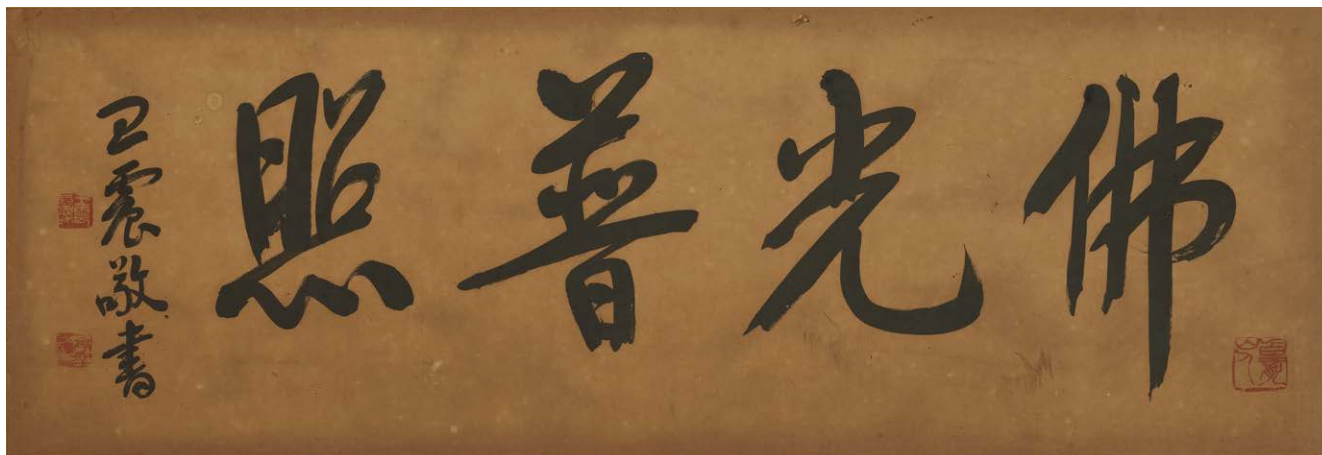 佛光普照
王震敬書